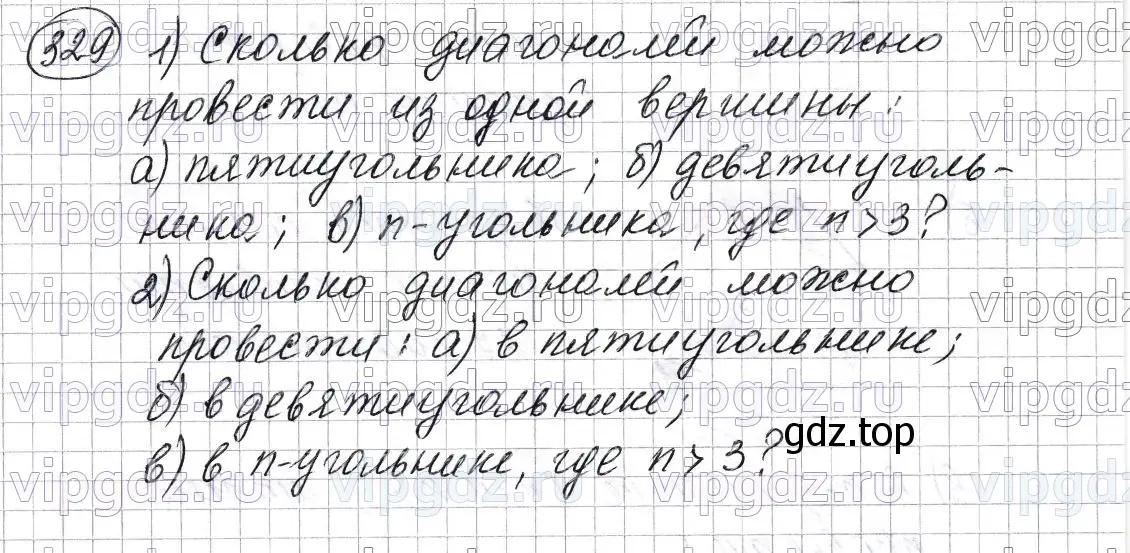 329 1) Сколько диагоналей можно
провести из одной вершины:
а) пятиугольника; б) девятиуголь-
ника; в) n-угольника, где n > 3?
2) Сколько диагоналей можно
провести: а) в пятиугольнике;
б) в девятиугольнике;
gdz.top
в) в n-угольнике, где n > 3?